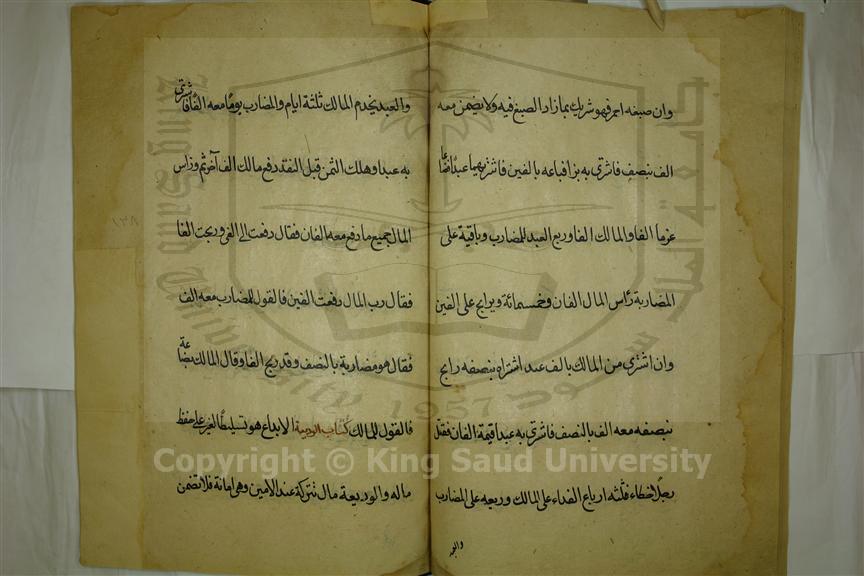 وان صبغه احمر فهو شريك بما زاد الصبغ فيه ولا يضمن معه
الف بنصف فاشترى به بزا فباعه بالفين فاشترى بهما عبدا ضاعا
غرما الفا والمالك الفا وربع العبد للمضارب وباقيه على
المضاربة رأس المال الفان وخمسمائة ويرابح على الفين
وان اشترى من المالك بالف عبدا اشتراه بنصفه رابح
بنصفه معه الف بالنصف فاشترى به عبدا قيمة الفان فقتل
رجلا خطاء فثلثه ارباع الفداء على المالك وربعه على المضارب
والعبد
والعبد يخدم المالك ثلثة ايام والمضارب يوما معه الف فاشترى
به عبدا وهلك الثمن قبل النقد دفع مالك الف آخر ثم ورأس
المال جميع ما دفع معه الفان فقال دفعت الى الفا وربحت الفا
فقال رب المال دفعت الفين فالقول للمضارب معه الف
فقال هو مضاربة بالنصف وقد ربح الفا وقال المالك بضاعة
فالقول للمالك كتاب الوديعة الايداع هو تسليط الغير على حفظ
ماله والوديعة مال تتركة عند الامين وهى امانة فلا تضمن
١٣٨
جامعة الملك سعود
King Saud University
1957
Copyright © King Saud University